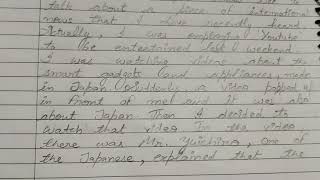 talk about a piece of international
news that I have recently heard
Actually, I was exploring Youtube
to be entertained last weekend.
I was watching videos about the
smart gadgets and appliances, made
in Japan. Suddenly a video popped up
in front of me and it was also
about Japan Than I decided to
watch that video In the video
there was Mr. Yuichino, one of
the Japanese, explained that the